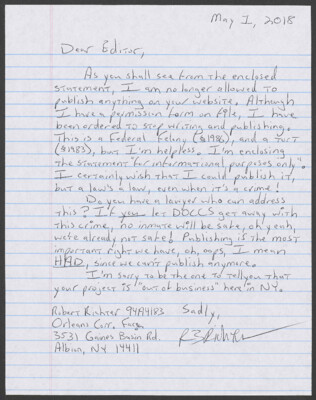 May 1, 2018
Dear Editor,
As you shall see from the enclosed
statement, I am no longer allowed to
publish anything on your website. Although
I have a permission form on file, I have
been ordered to stop writing and publishing.
This is a Federal Felony (§1986), and a TORT
(§1983), but I'm helpless. I'm enclosing
the statement "for informational purposes only."
I certainly wish that I could publish it,
but a law's a law, even when it's a crime!
Do you have a lawyer who can address
this? If you let DOCCS get away with
this crime, no inmate will be safe, oh yeah,
we're already not safe! Publishing is the most
important right we have, oh, oops, I mean
HAD, since we can't publish anymore.
I'm sorry to be the one to tell you that
your project is "out of business" here in NY.
Robert Richter 94A4183 Sadly,
Orleans Corr. Fac.
3531 Gaines Basin Rd.
Albion, NY 14411